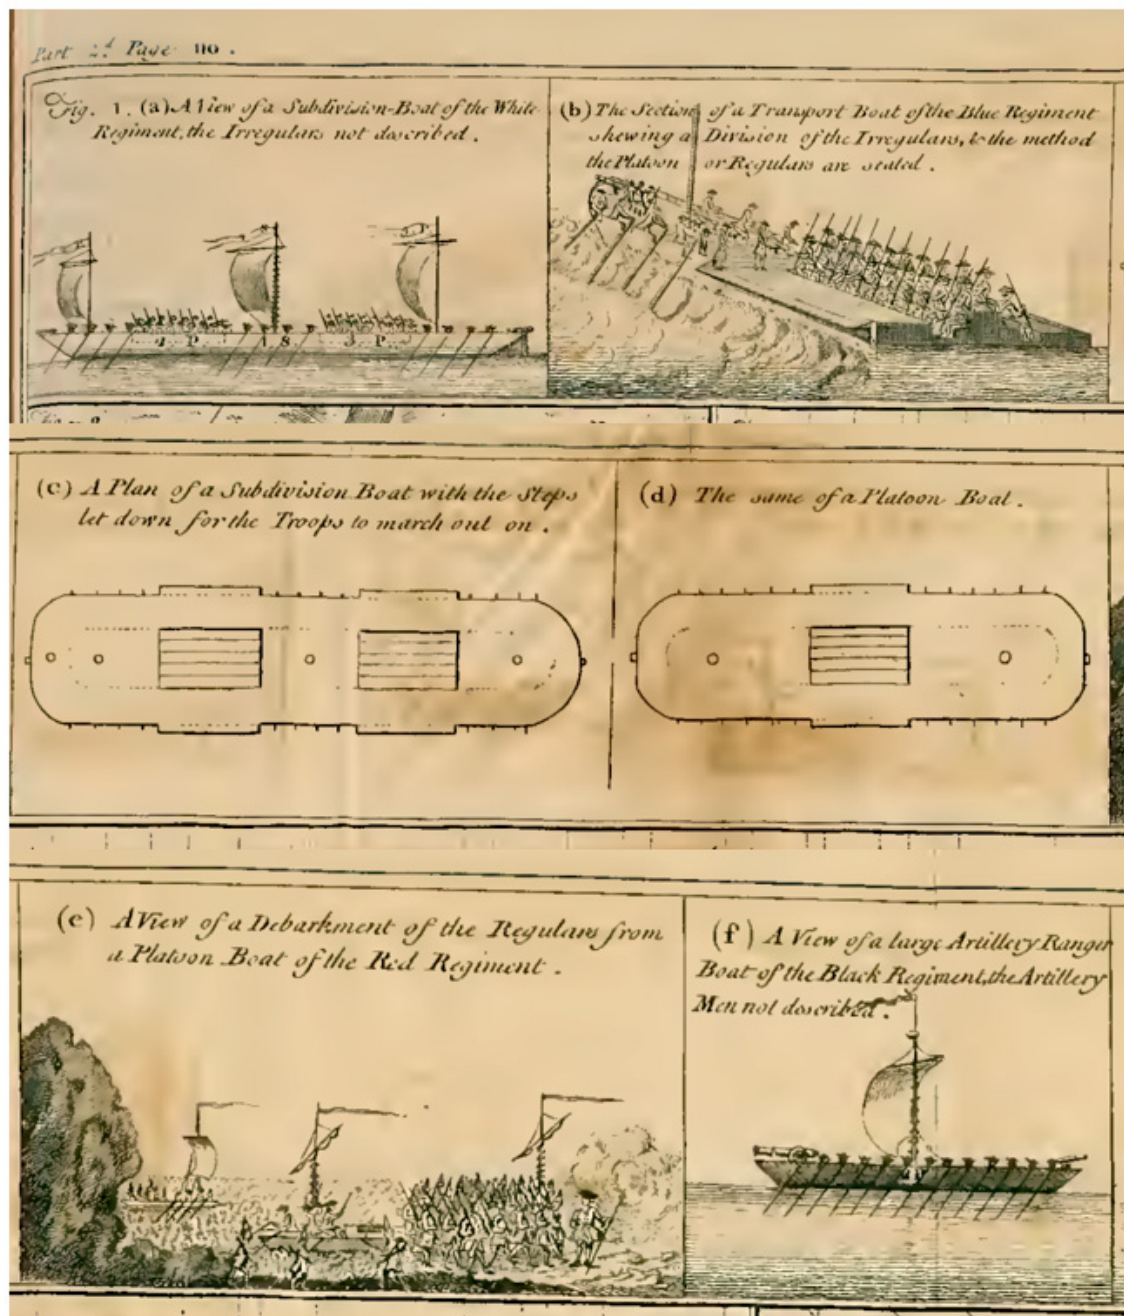 Part 2.d Page 110.
Fig. 1. (a) A View of a Subdivision-Boat of the White
Regiment, the Irregulars not described.
(b) The Section of a Transport Boat of the Blue Regiment
shewing a Division of the Irregulars, & the method
the Platoon or Regulars are seated.
4 P 1 S 3 P
(c) A Plan of a Subdivision Boat with the Steps
let down for the Troops to march out on.
(d) The same of a Platoon Boat.
(e) A View of a Debarkment of the Regulars from
a Platoon Boat of the Red Regiment.
(f) A View of a large Artillery Ranger
Boat of the Black Regiment, the Artillery
Men not described.